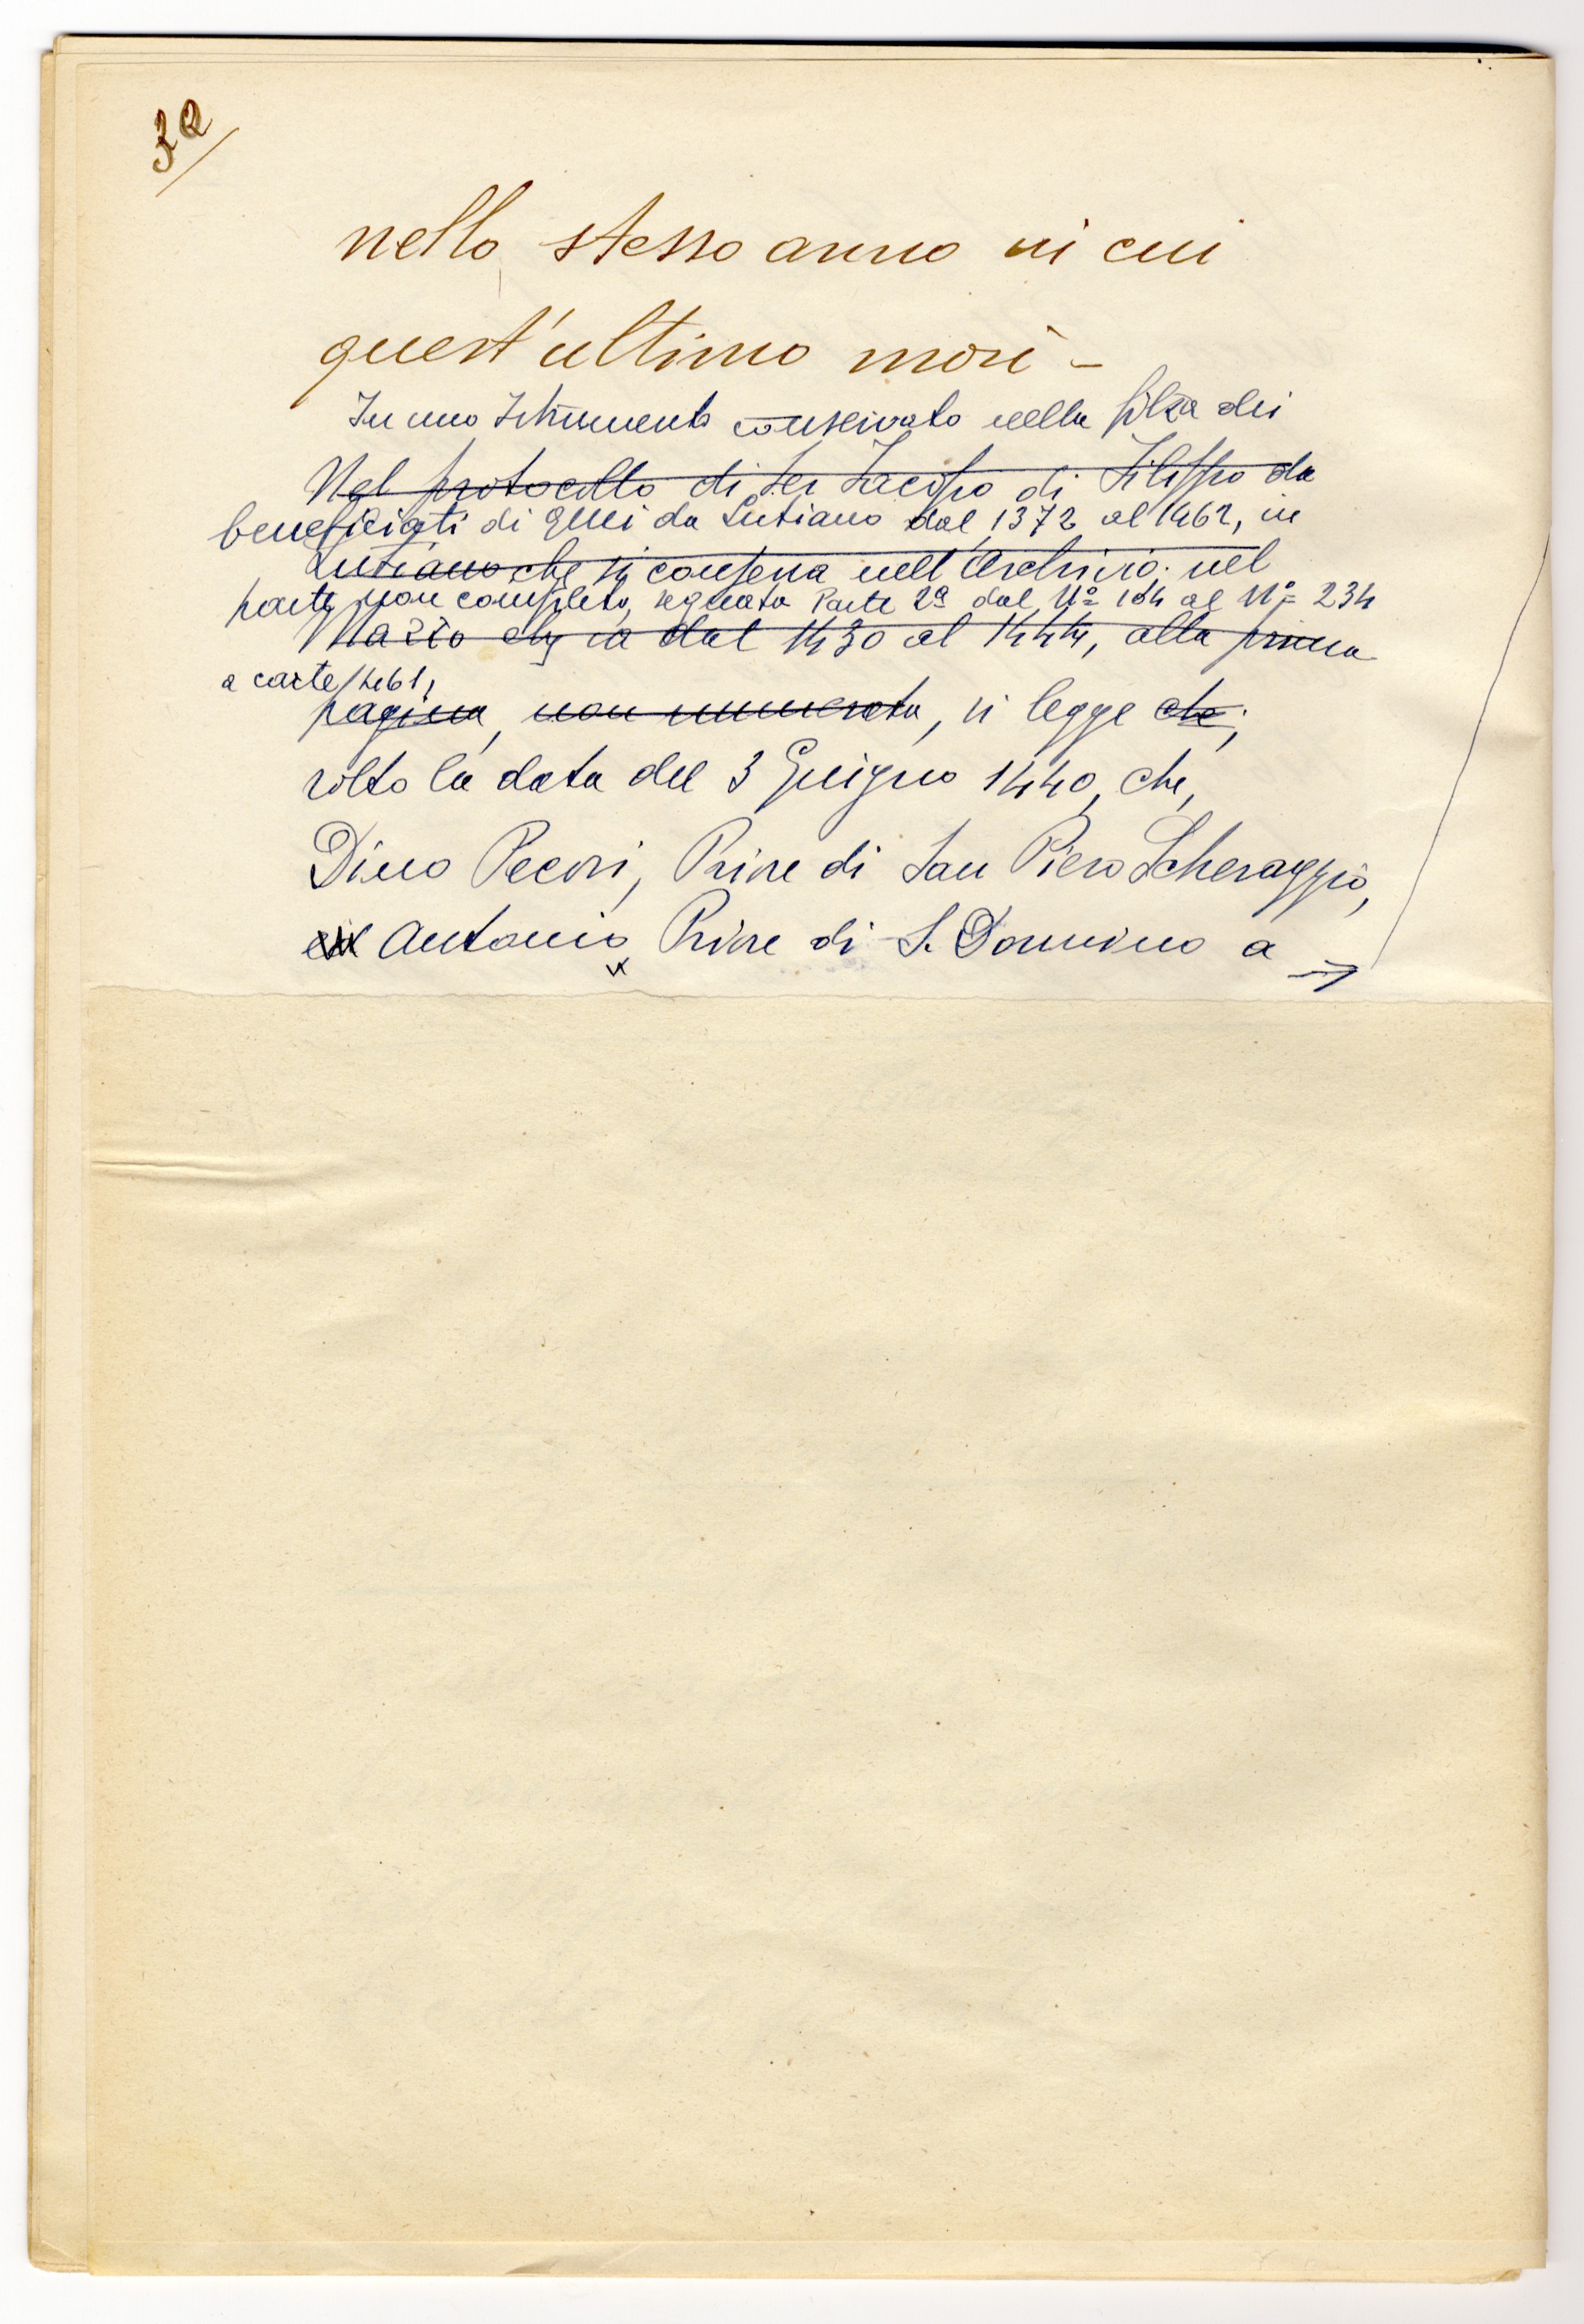 3a
nello stesso anno in cui
quest'ultimo morì -
In uno Istrumento conservato nella filza dei
Nel protocollo di Ser Jacopo di Filippo da
benefiziati di quei da Lutiano dal 1372 al 1462, in
Lutiano che si conserva nell'Archivio. nel
parte non completo, segnata Parte 2ª dal Nº 184 al Nº 234
Mazzo che va dal 1430 al 1444, alla prima
a carte 461,
pagina, non numerata, si legge che;
sotto la data del 3 Giugno 1440, che,
Dino Pecori, Priore di San Piero Scheraggio,
Antonio, Priore di S. Donnino a →